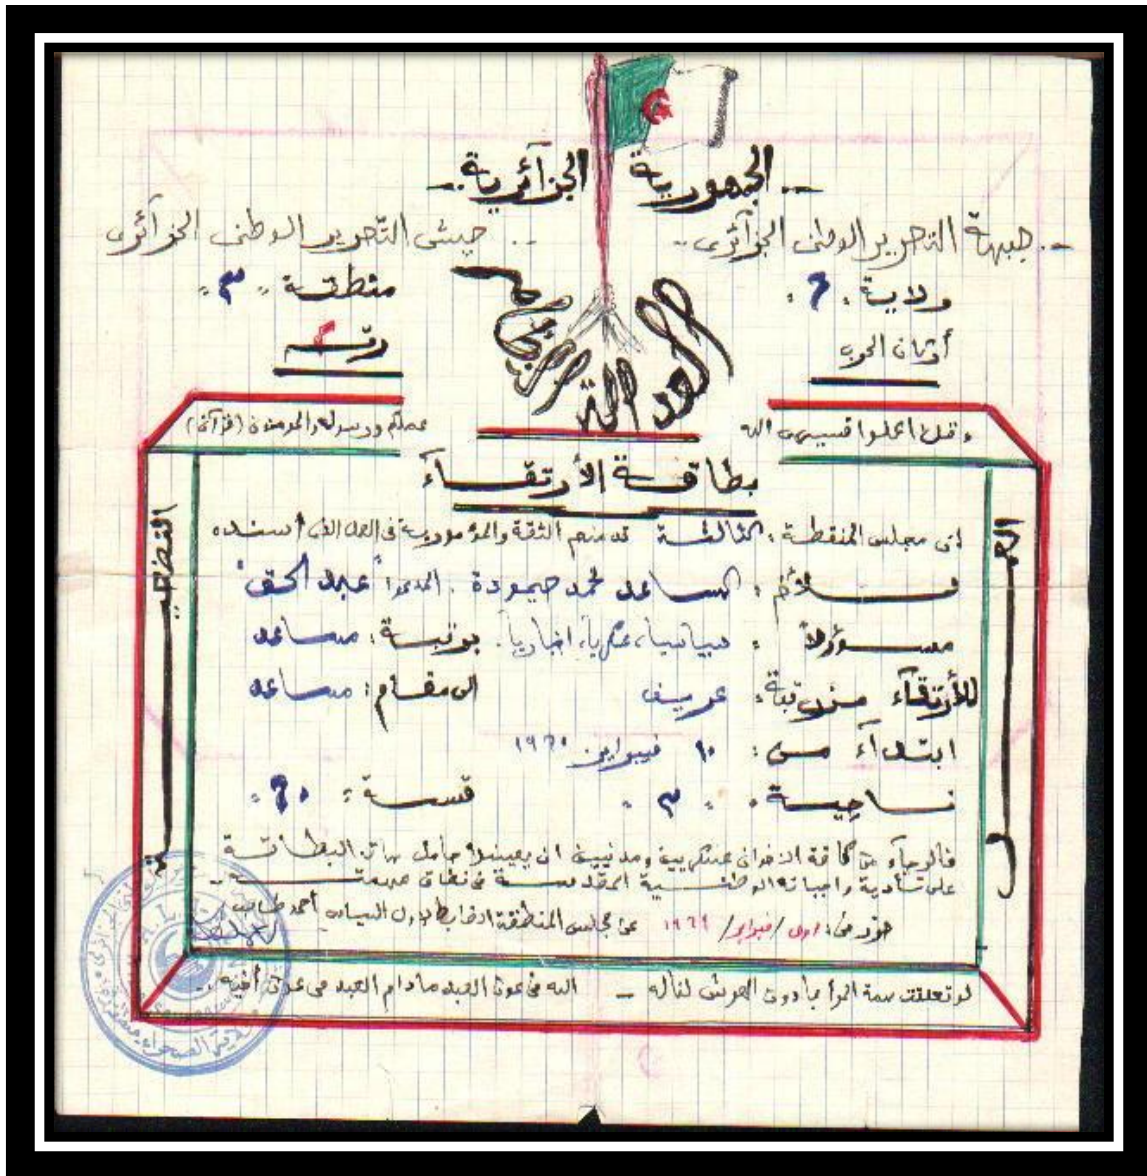 -.. الجمهورية الجزآئرية ..-
-. جبهة التحرير الوطنى الجزآئرى .-
.. جيش التّحرير الوطنى الجزآئرى
ولاية : ٦ :
منطقة " ٣ "
أركان الحرب
رقم ٢
وقل اعملوا فسيرى الله
عملكم ورسوله والمومنون (قرآن)
بطاقة الأرتقاء
ان مجلس المنقطة : الثالثة قد منحم الثقة والمؤمورية فى العمل الذى أسنده
للأخ : المساعد محمد حيمودة . المدعو : "عبد الحق"
مسؤولاً : سياسيا، عسكريا، اخباريا . برتبة : مساعد
للأرتقاء من رتبة : عريف الى مقام : مساعد
ابتدآء من : ١٠ فيبراير ١٩٦١
ناحية : " ٣ " قسمة : ٦٠ :
فالرجآء من كافة الاخوان عسكريين ومدنيين ان يعينوا حامل هاته البطاقة
على تأدية واجباته الوطنية المقدسة فى نطاق مهمته
حرر فى : اول / فبراير / ١٩٦١ عن مجلس المنطقة الضابط الاول السياسى أحمد طالب
لو تعلقت همة المرأ بما دون العرش لناله - الله فى عون العبد مادام العبد فى عون أخيه ..
ولاية الصحراء